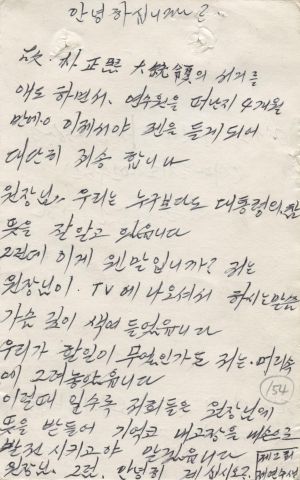 안녕하십니까?
故. 朴正熙 大統領의 서거를
애도 하면서, 연수원을 떠난지 4개월
만에야 이제서야 펜을 들게되어
대단히 죄송 합니다
원장님, 우리는 누구보다도 대통령의 참
뜻을 잘알고 있읍니다
그런데 이게 웬말입니까? 저는
원장님이. TV에 나오셔서 하시는말씀
가슴 깊이 새여 들었읍니다
우리가 할일이 무엇인가도 저는. 머리속
에 그려놓았읍니다
이런때 일수록 저희들은 원장님에
뜻을 받들어 기억코 내고장을 내손으로
발전 시키고야 말겠읍니다
원장님. 그럼. 안녕히 계십시요.
154
제2회